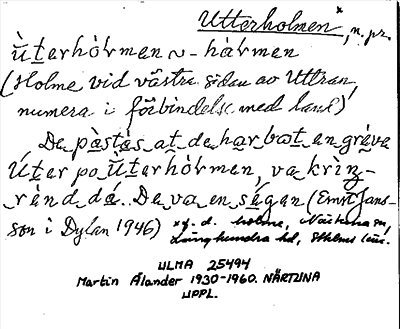 Utterholmen x, n. pr.
ùterhólmen ~ -hàrmen
(Holme vid västra sidan av Uttran,
numera i förbindelse med land)
De pàstàs at de har bot en gréva
Úter po ùterhólmen, va kring-
rénd då. De va en ságen (Ernst Jans-
son i Dylan 1946) x f. d. holme, Närtuna sn,
Långhundra hd, Sthlms län.
ULMA 25494
Martin Ålander 1930-1960. NÄRTUNA
UPPL.